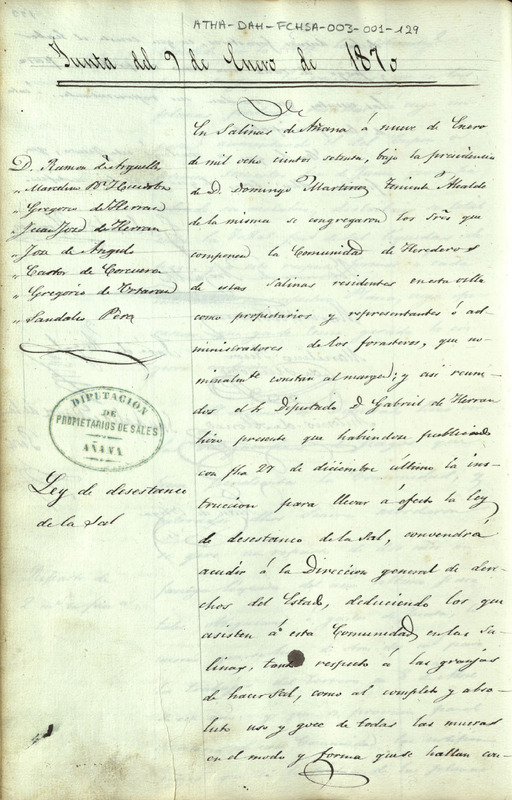 ATHA-DAH-FCHSA-003-001-129
Junta del 9 de Enero de 1870
D. Ramon de Arguelles
" Marcelino
" Gregorio de Herran
" Juan José de Herran
" José de Angulo
" Castor de Corcuera
" Gregorio de Ortaran
" Sandalio
DIPUTACION
DE
PROPIETARIOS DE SALES
AÑANA
Ley de desestanco
de la Sal
En Salinas de Añana á nueve de Enero
de mil ocho cientos setenta, bajo la presidencia
de D. Domingo Martinez Teniente Alcalde
de la misma se congregaron los Sres que
componen la Comunidad de Herederos
de estas Salinas residentes en esta villa
como propietarios y representantes ó ad-
ministradores de los forasteros, que no-
minalmte constan al margen; y asi reuni-
dos el Sr Diputado D. Gabriel de Herran
hizo presente que habiendose publicado
con fha 27 de diciembre último la ins-
truccion para llevar á efecto la ley
de desestanco de la Sal, convendrá
acudir á la Direccion general de dere-
chos del Estado, deduciendo los que
asisten á esta Comunidad en las Sa-
linas, tanto respecto á las granjas
de hacer Sal, como al completo y abso-
luto uso y goce de todas las mueras
en el modo y forma que se hallan con-